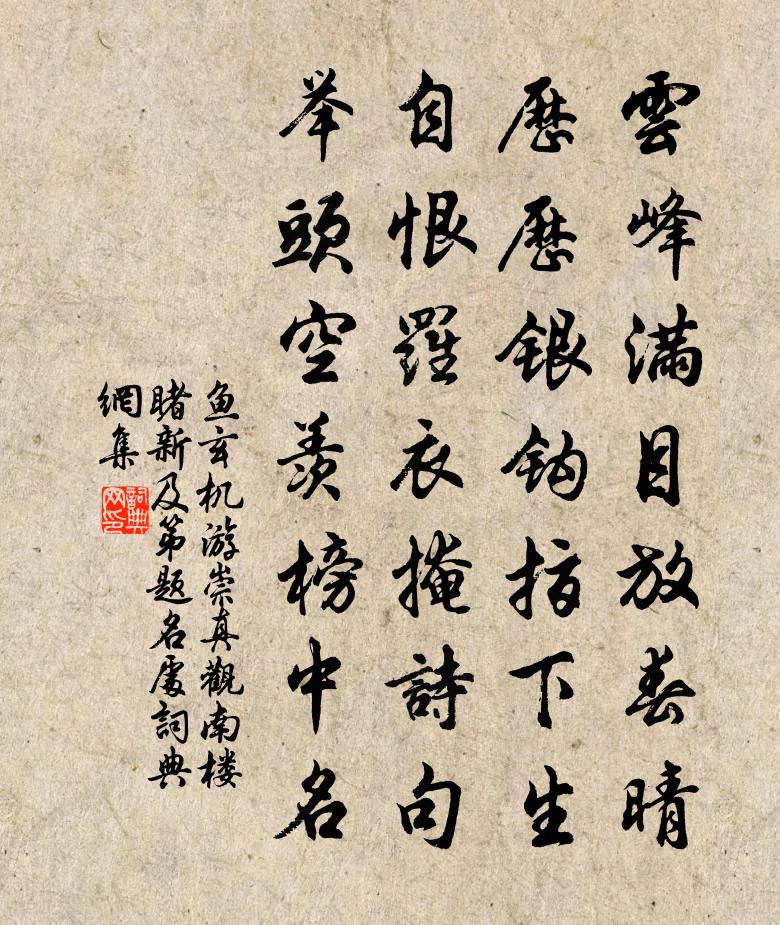 雲峰滿目放春晴
歷歷銀鉤指下生
自恨羅衣掩詩句
举頭空羨榜中名
魚玄机游崇真觀南楼
睹新及第题名處詞典
網集
詞典网印